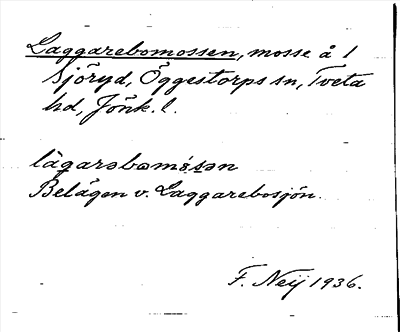 Laggarebomossen, mosse å 1
Sjöryd, Öggestorps sn, Tveta
hd, Jönk. l.
làgarəbomósən
Belägen v. Laggarebosjön.
F. Neij 1936.